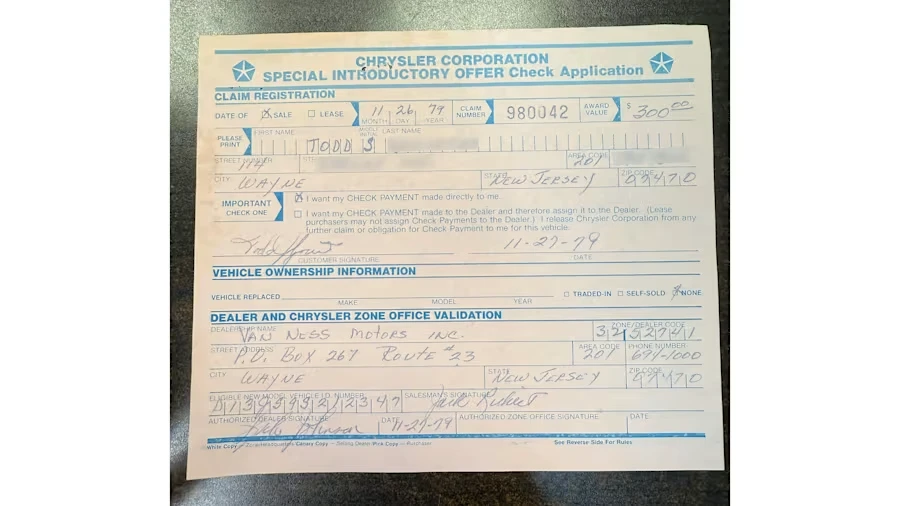 CHRYSLER CORPORATION
SPECIAL INTRODUCTORY OFFER Check Application
CLAIM REGISTRATION
DATE OF SALE LEASE 11 26 79 MONTH DAY YEAR CLAIM NUMBER 980042 AWARD VALUE $ 300.00
PLEASE PRINT FIRST NAME MIDDLE INITIAL LAST NAME
TODD S
STREET NUMBER AREA CODE
114 201
CITY STATE ZIP CODE
WAYNE NEW JERSEY 07470
IMPORTANT CHECK ONE
I want my CHECK PAYMENT made directly to me.
I want my CHECK PAYMENT made to the Dealer and therefore assign it to the Dealer. (Lease
purchasers may not assign Check Payments to the Dealer.) I release Chrysler Corporation from any
further claim or obligation for Check Payment to me for this vehicle.
Todd 11-27-79
CUSTOMER SIGNATURE DATE
VEHICLE OWNERSHIP INFORMATION
VEHICLE REPLACED TRADED-IN SELF-SOLD NONE
MAKE MODEL YEAR
DEALER AND CHRYSLER ZONE OFFICE VALIDATION
DEALERSHIP NAME ZONE/DEALER CODE
VAN NESS MOTORS INC.
STREET ADDRESS AREA CODE PHONE NUMBER
P.O. BOX 267 ROUTE #23 201 694-1000
CITY STATE ZIP CODE
WAYNE NEW JERSEY 07470
ELIGIBLE NEW MODEL VEHICLE I.D. NUMBER SALESMAN'S SIGNATURE
AUTHORIZED DEALER SIGNATURE DATE AUTHORIZED ZONE OFFICE SIGNATURE DATE
11-27-79
White Copy Canary Copy Pink Copy Purchaser See Reverse Side For Rules